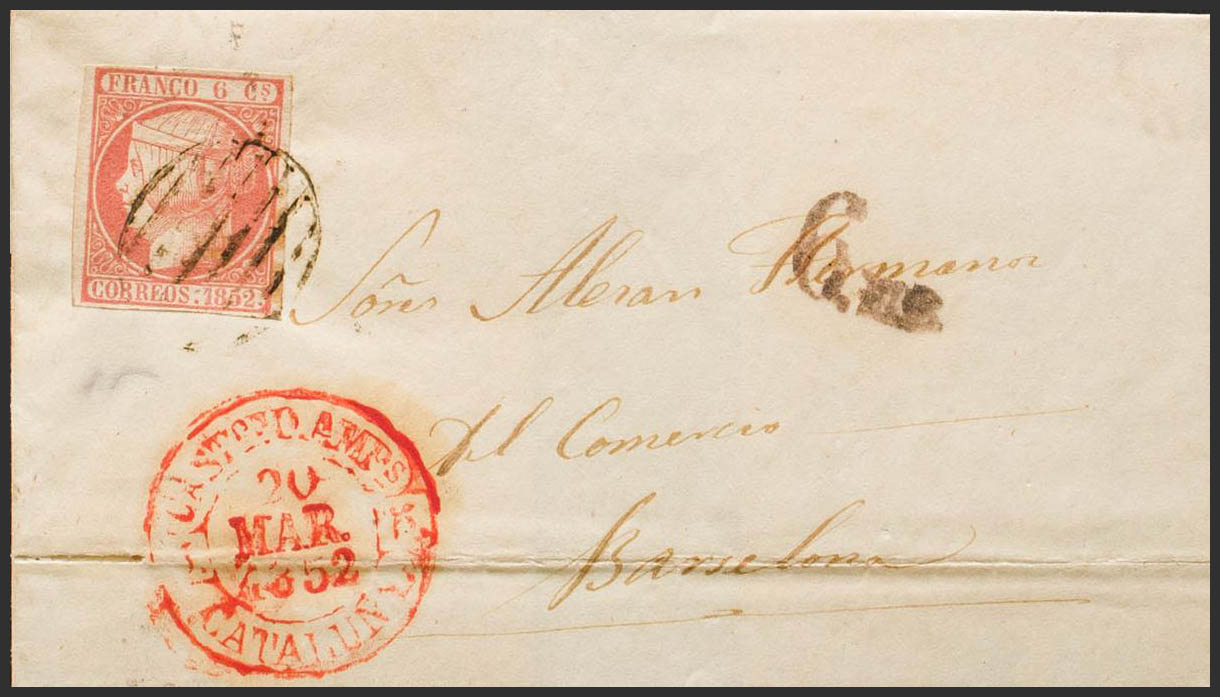 FRANCO 6 Cs
CORREOS. 1852.
6 Cs
Sōres Aleran Hermanos
del Comercio
Barselona
CASTON D.AMPs
20
MAR.
1852
CATALUÑA